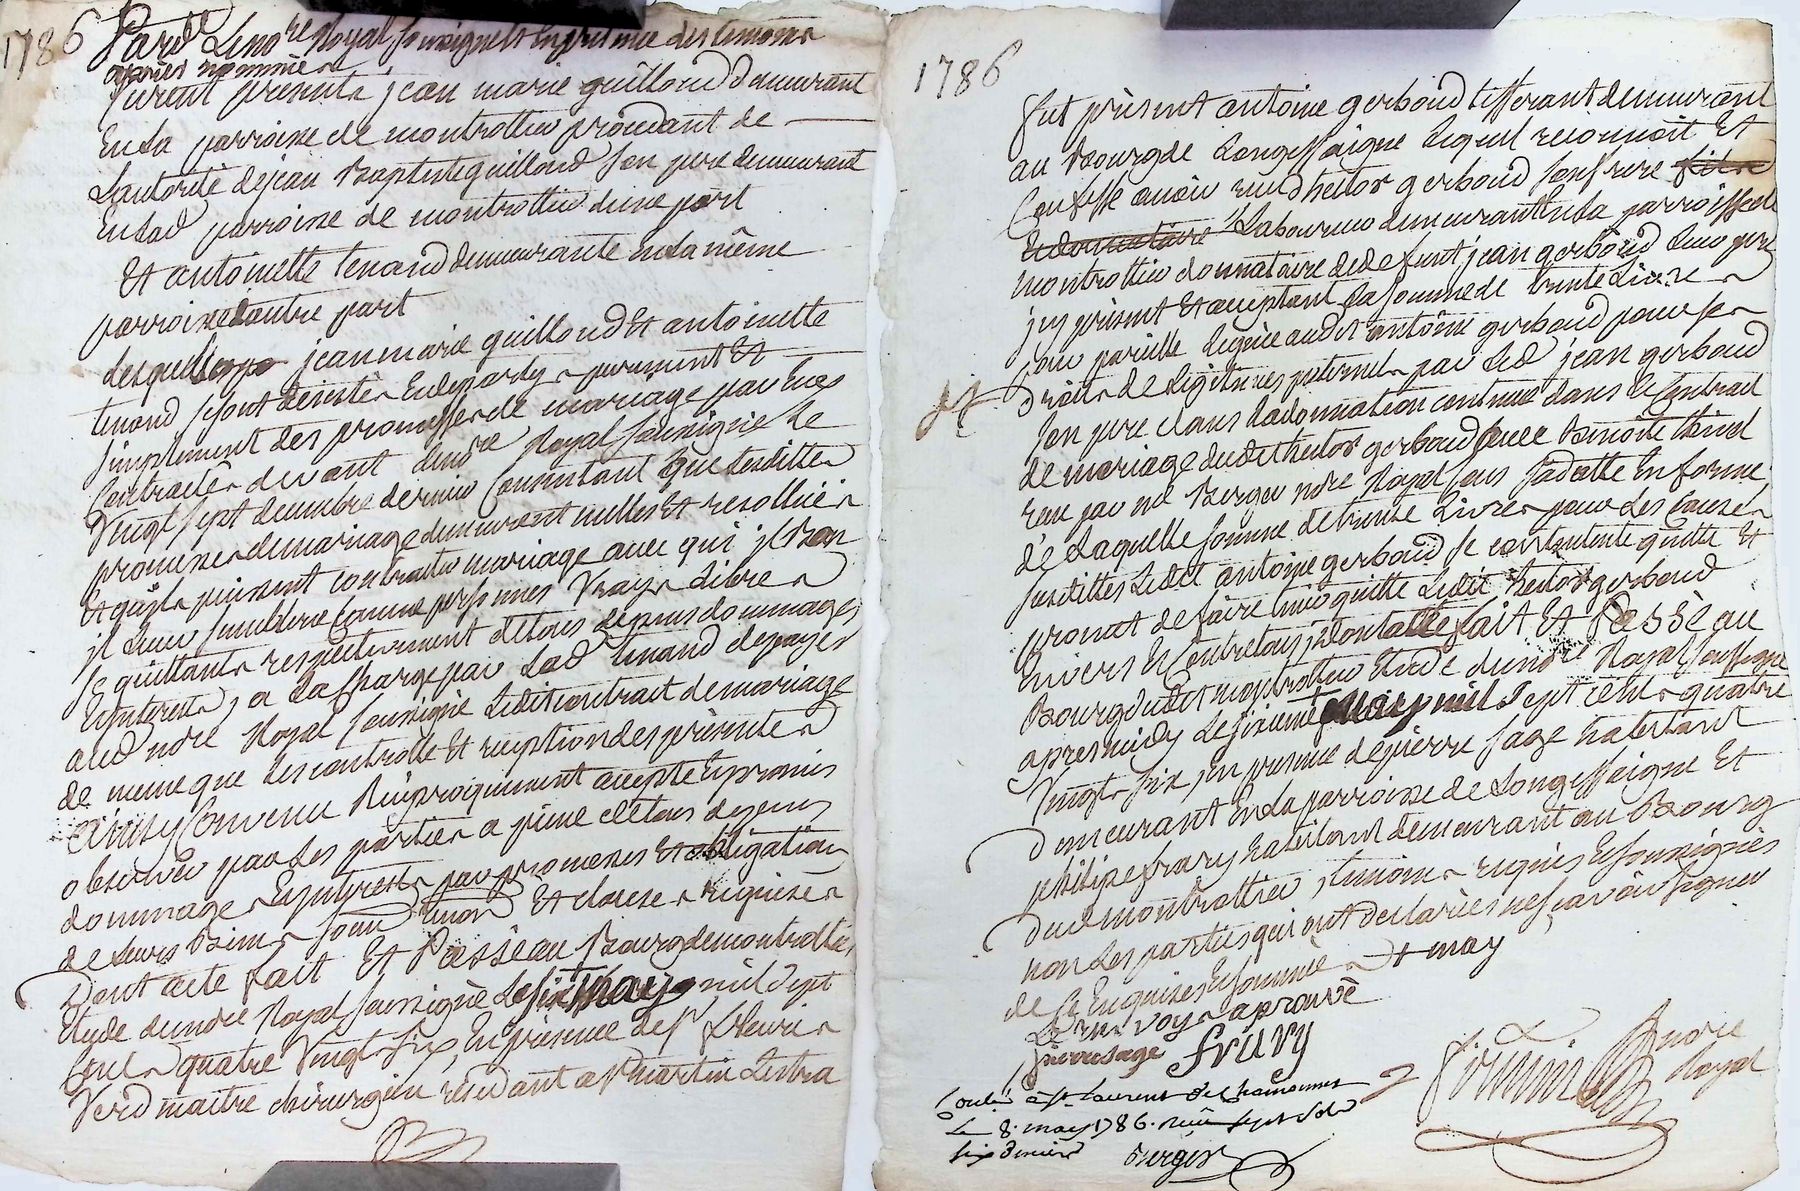 1786
Pard. Le no.re Royal soussigné et En presence des temoins
apres nommés
furent présents jean marie guilloud demeurant
En la parroisse de montrottier procédant de
L'autorité de jean Baptiste guilloud son pere demeurant
En lad. parroisse de montrottier d'une part
Et antoinette tenand demeurante en la même
parroisse d'autre part
Lesquelles jean marie guilloud Et antoinette
tenand se sont désistés purement Et
simplement des promesses de mariage par Eux
Contractés devant Le no.re Royal soussigné Le
Vingt sept decembre dernier Consentant que lesdittes
promesses de mariage demeurent nulles Et resollues
Et quils puissent contracter mariage avec qui jl bon
jl Leur semblera Comme personnes Vrayes Libres
se quittants respectivement de tous depens dommages
Et interests, a La Charge par Lad. tenand de payer
aud. no.re Royal soussigné Ledit contrait de mariage
de meme que Les controlle Et reception des présentes
Ainsy Convenu Réciproquement accepté Et promis
observer par Les parties a peine de tous depens
dommages Et interests par promesses Et obligation
de Leurs Biens soum. renon. Et clauses requises
Dont acte fait Et Passé au Bourg de montrottier
Etude du no.re Royal soussigné Le six May mil sept
Cent quatre Vingt six, En présence de s.r fleurie
Verd maitre chirurgien residant a s.t martin Lestra
1786
fut présent antoine gerboud tisserant demeurant
au Bourg de Longessaigne Lequel reconnoit Et
Confesse avoir reçu d'hector gerboud son frere
Laboureur demeurant En La parroisse de
montrottier donnataire de defunt jean gerboud Leur pere
jcy présent Et acceptant La somme de trente Livres
pour pareille Leguée audit antoine gerboud pour ses
Droits de Legitimes paternels par Led. jean gerboud
son pere dans La donnation contenue dans Le Contrait
de mariage dudit hector gerboud avec Benoite
reçu par me Berger no.re Royal sous sa datte En forme
de Laquelle somme de trente Livres pour Les Causes
susdittes Ledit antoine gerboud se contente quitte Et
promet de faire tenir quitte Ledit hector gerboud
Envers Et Contre tous, dont acte fait Et Passé au
Bourg dudit montrottier Etude du no.re Royal soussigné
apres midy Le sixieme May mil sept cent quatre
Vingt six, En presence de pierre sage habitant
Demeurant En La parroisse de Longessaigne Et
philipe frary habitant demeurant au Bourg
dud. montrottier, temoins requis Et soussignés
non Les parties qui ont declarées ne scavoir signer
de Ce Enquises Et sommées + may
Le renvoy aprouvé
pierre sage frary
no.re
Royal
Conlé à St. Laurent de Chamousset
Le 8. may 1786. reçu sept sols
six deniers Berger